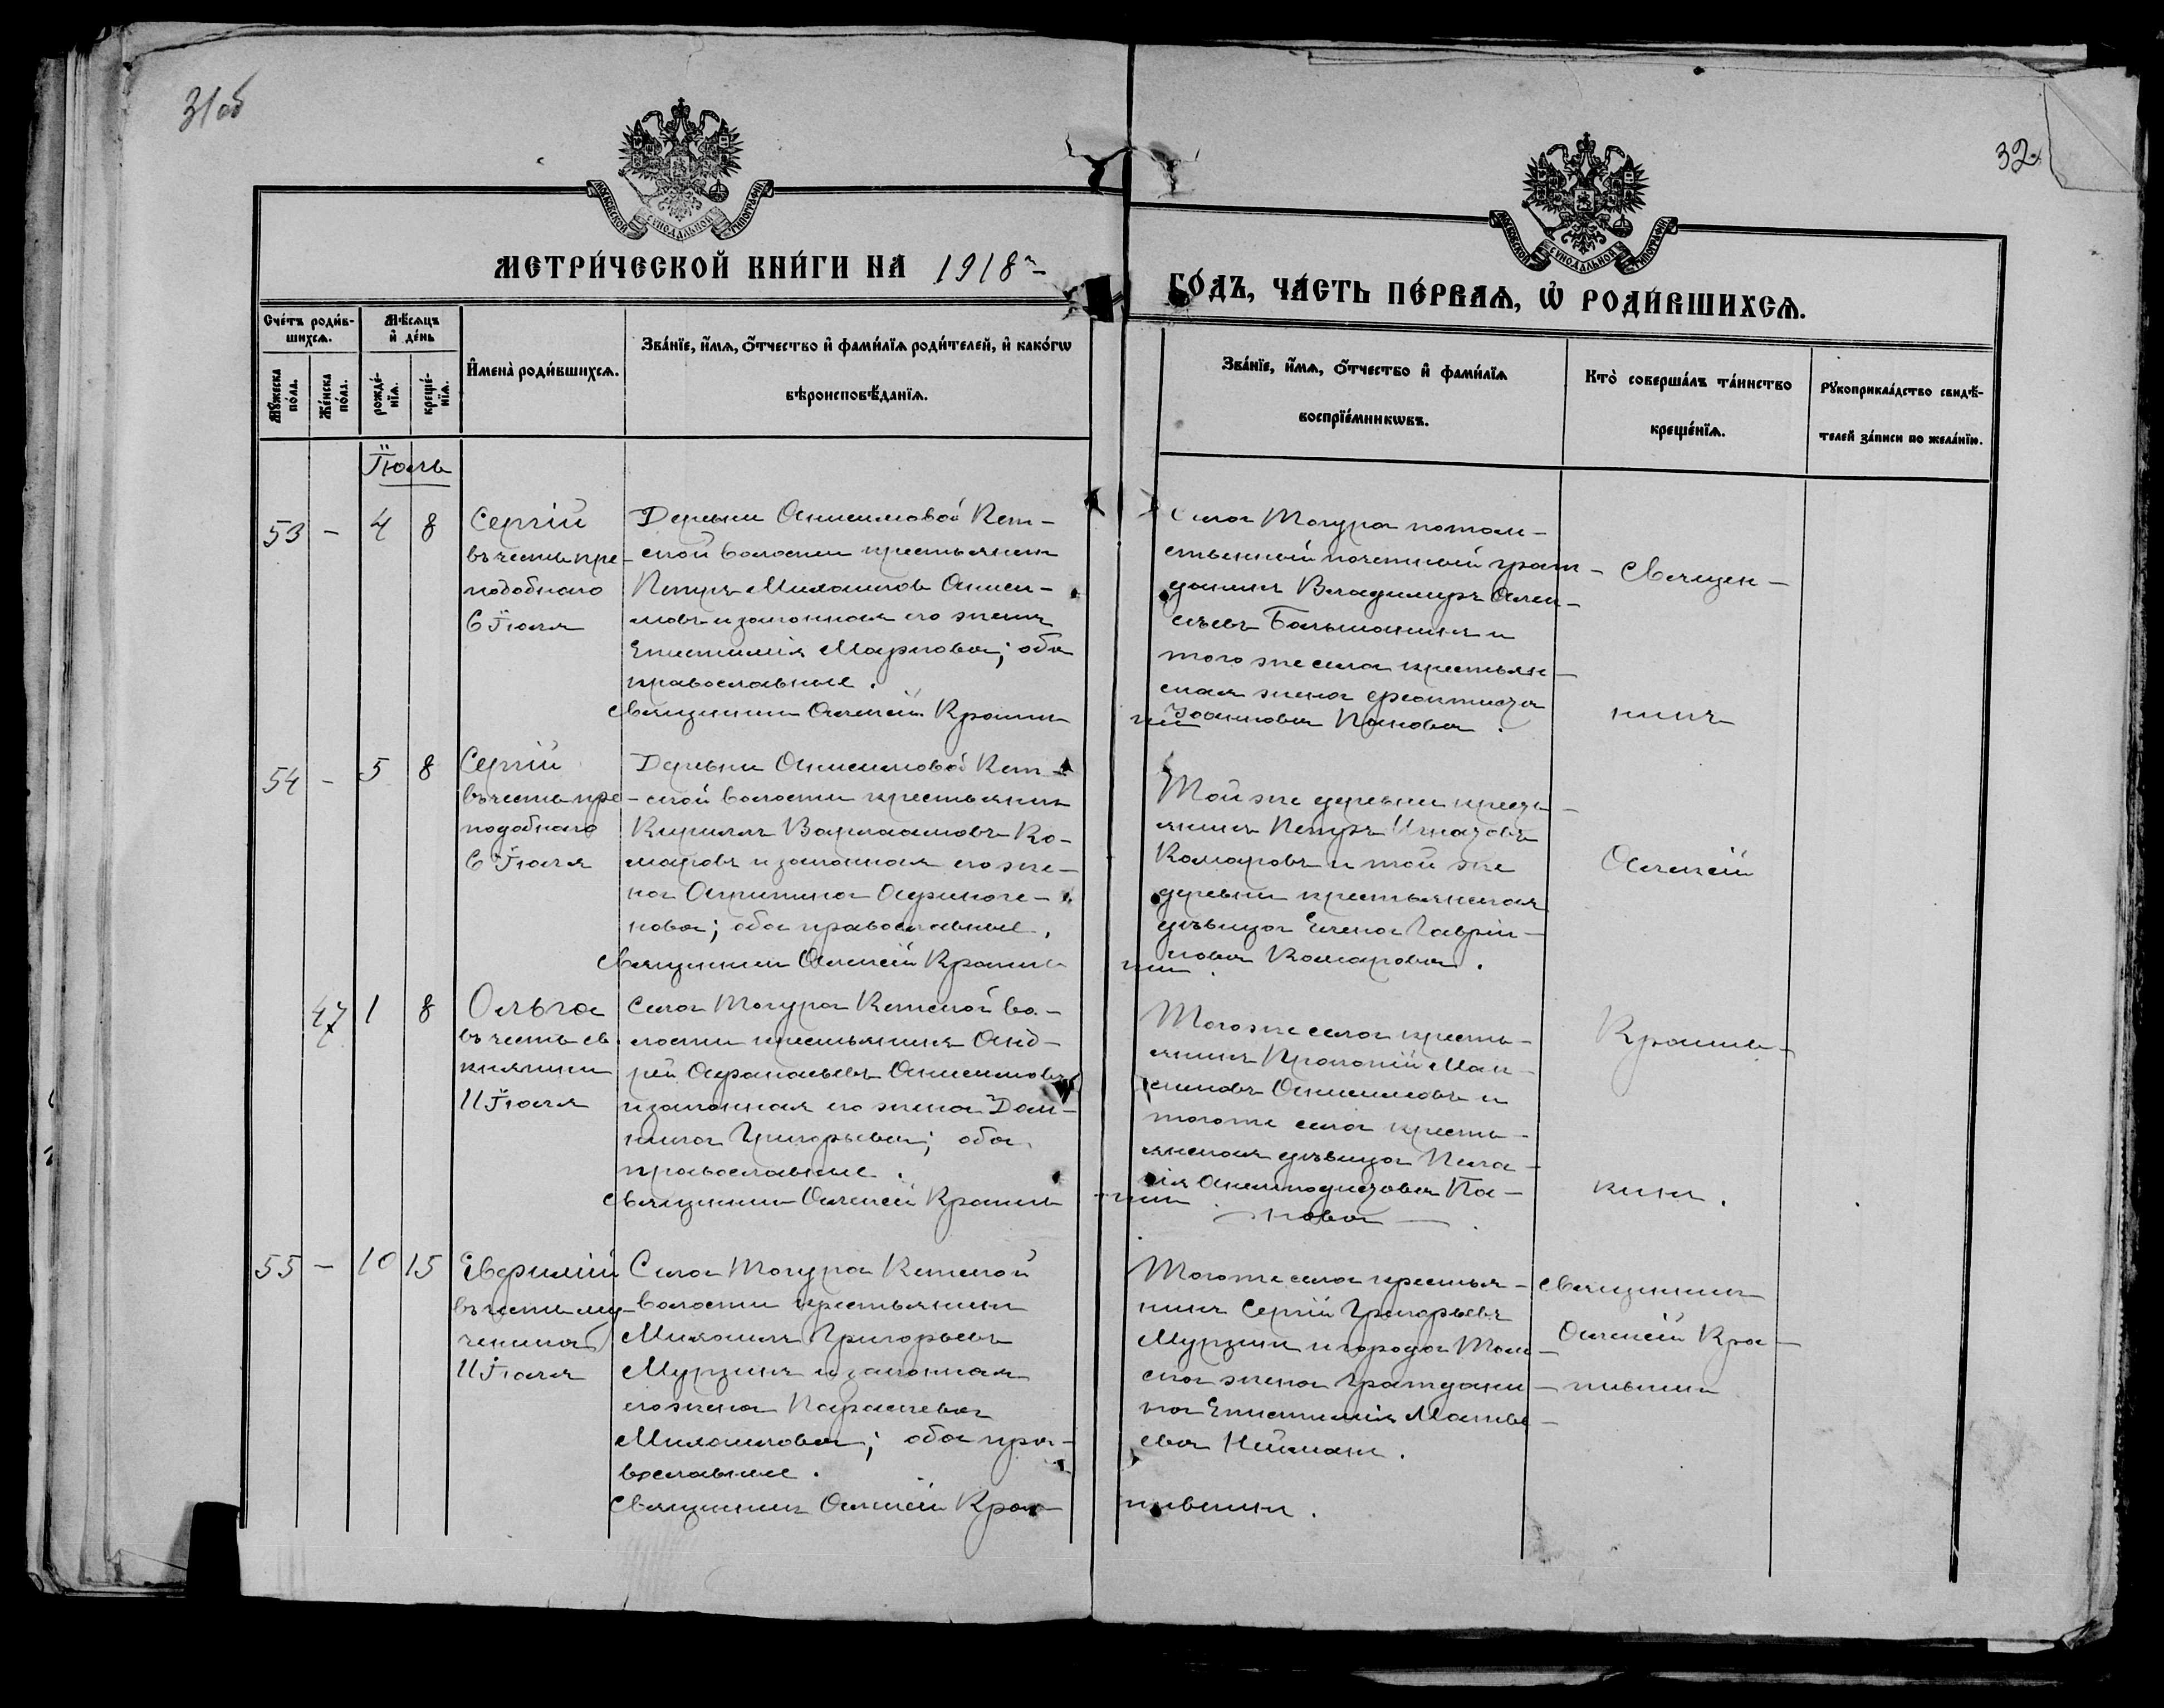 31об
32.
МОСКОВСКОЙ СѴНОДАЛЬНОЙ ТИПОГРАФІИ
МОСКОВСКОЙ СѴНОДАЛЬНОЙ ТИПОГРАФІИ
МЕТРИ́ЧЕСКОЙ КНИ́ГИ НА 1918 г
ГО́ДЪ, ЧА́СТЬ ПЕ́РВАѦ, Ѡ҆ РОДИ́ВШИХСѦ.
Сче́тъ роди́в-
шихсѧ.
Мѣ́сѧцъ
и҆ де́нь
Мꙋ́жеска
по́ла.
Же́нска
по́ла.
рожде́-
нїѧ.
креще́-
нїѧ.
И҆мена̀ роди́вшихсѧ.
Зва́нїе, и҆́мѧ, ѻ҆́тчество и҆ фами́лїѧ роди́телей, и҆ како́гѡ
вѣроисповѣ́данїѧ.
Зва́нїе, и҆́мѧ, ѻ҆́тчество и҆ фами́лїѧ
воспрїе́мникѡвъ.
Кто̀ соверша́лъ та́инство
креще́нїѧ.
Рꙋкоприкла́дство свидѣ́-
телей за́писи по жела́нїю.
Іюль
53 - 4 8
Сергій
въ честь пре-
подобнаго
6 Іюля
Деревни Анисимовой Кет-
ской волости крестьянин
Петръ Михаиловъ Аниси-
мовъ и законная его жена
Епистимія Маркова; оба
православные.
Священник Алексій Крапи-
Села Тогура потом-
ственный почетный граж-
данинъ Владимиръ Алек-
сѣевъ Бальманинъ и
того же села крестьян-
ская жена Феоктиста
Іоаннова Панова.
Священ-
никъ
54 - 5 8
Сергій
въ честь пре-
подобнаго
6 Іюля
Деревни Анисимовой Кет-
ской волости крестьянин
Кириллъ Варлаамовъ Ко-
маровъ и законная его же-
на Агрипина Афиноге-
нова; оба православные.
Священник Алексій Крапив-
Той же деревни кресть-
янинъ Петръ Игнатовъ
Комаровъ и той же
деревни крестьянская
дѣвица Елена Гаврiи-
лова Комарова.
Алексій
47 1 8
Ольга
въ честь св.
княгини
11 Іюля
Села Тогура Кетской во-
лости крестьянинъ Анд-
рей Афанасьевъ Анисимовъ
и законная его жена Дом-
ника Григорьева; оба
православные.
Священник Алексій Крапив-
Того же села кресть-
янинъ Прокопій Мак-
симовъ Анисимовъ и
того же села кресть-
янская дѣвица Пела-
гія Анемподистова Па-
нова
Крапив-
кинъ.
55 - 10 15
Евфимій
въ честь му-
ченика
11 Іюля
Села Тогура Кетской
волости крестьянин
Михаилъ Григорьевъ
Мурзинъ и законная
его жена Параскева
Михаилова; оба пра-
вославные.
Священникъ Алексій Кра-
пивкин.
Того же села крестья-
нинъ Сергій Григорьевъ
Мурзин и города Том-
ска жена граждани-
на Епистимія Матвѣ-
ева Нейман.
Священник
Алексій Кра-
пивкин